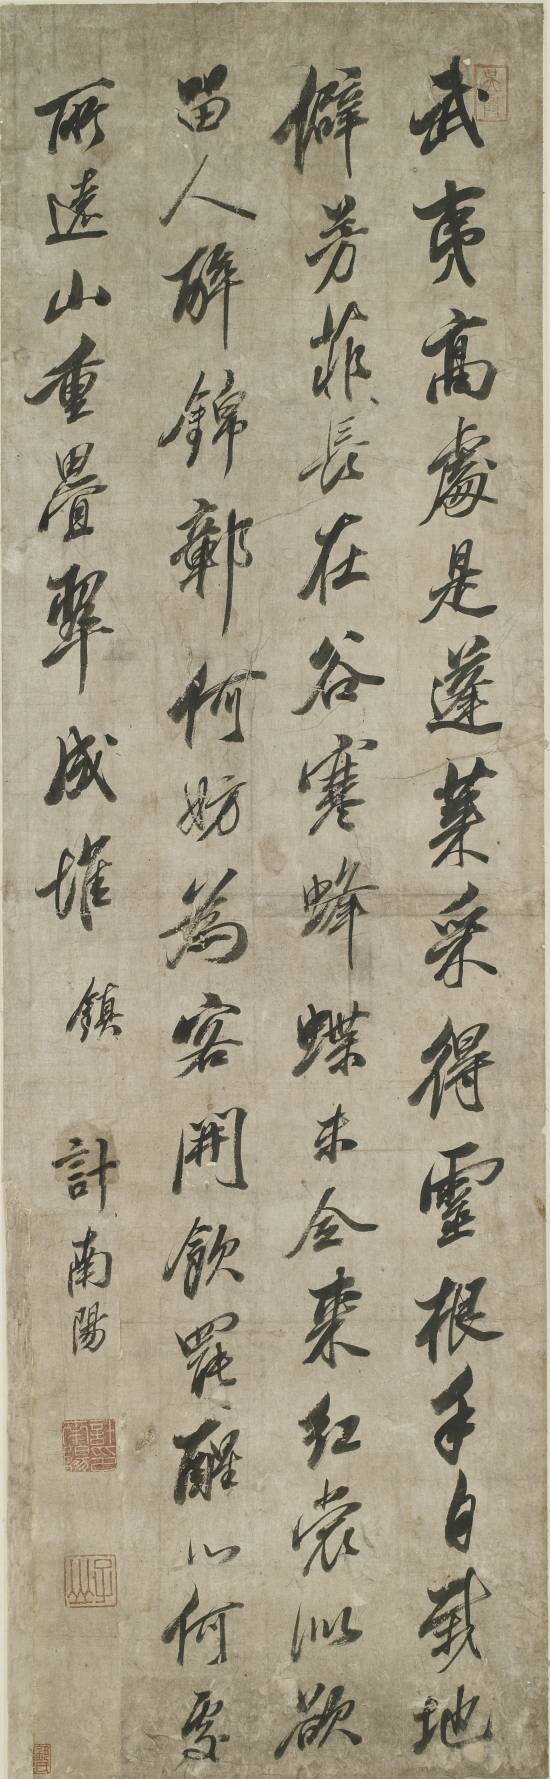 武夷高處是蓬萊采得靈根手自栽地
僻芳菲長在谷寒蜂蝶未全來紅裳似欲
留人醉錦鄣何妨為客開飲罷醒心何處
所遠山重疊翠成堆 鎮
計南陽
計南陽印
子山